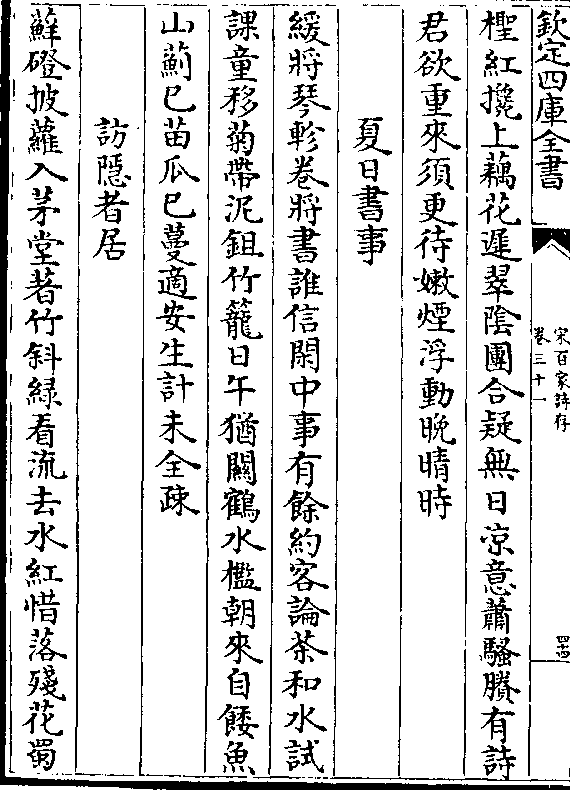 欽定四庫全書
宋百家詩存
卷三十一
四
檉紅撓上藕花遲翠陰團合疑無日凉意蕭騷賸有詩
君欲重來須更待嫩煙浮動晚晴時
夏日書事
緩將琴軫卷將書誰信閑中事有餘約客論茶和水試
課童移菊帶泥鉏竹籠日午猶關鶴水檻朝來自餧魚
山薊已苗瓜已蔓適安生計未全疎
訪隱者居
蘚磴披蘿入茅堂著竹斜緑看流去水紅惜落殘花蜀